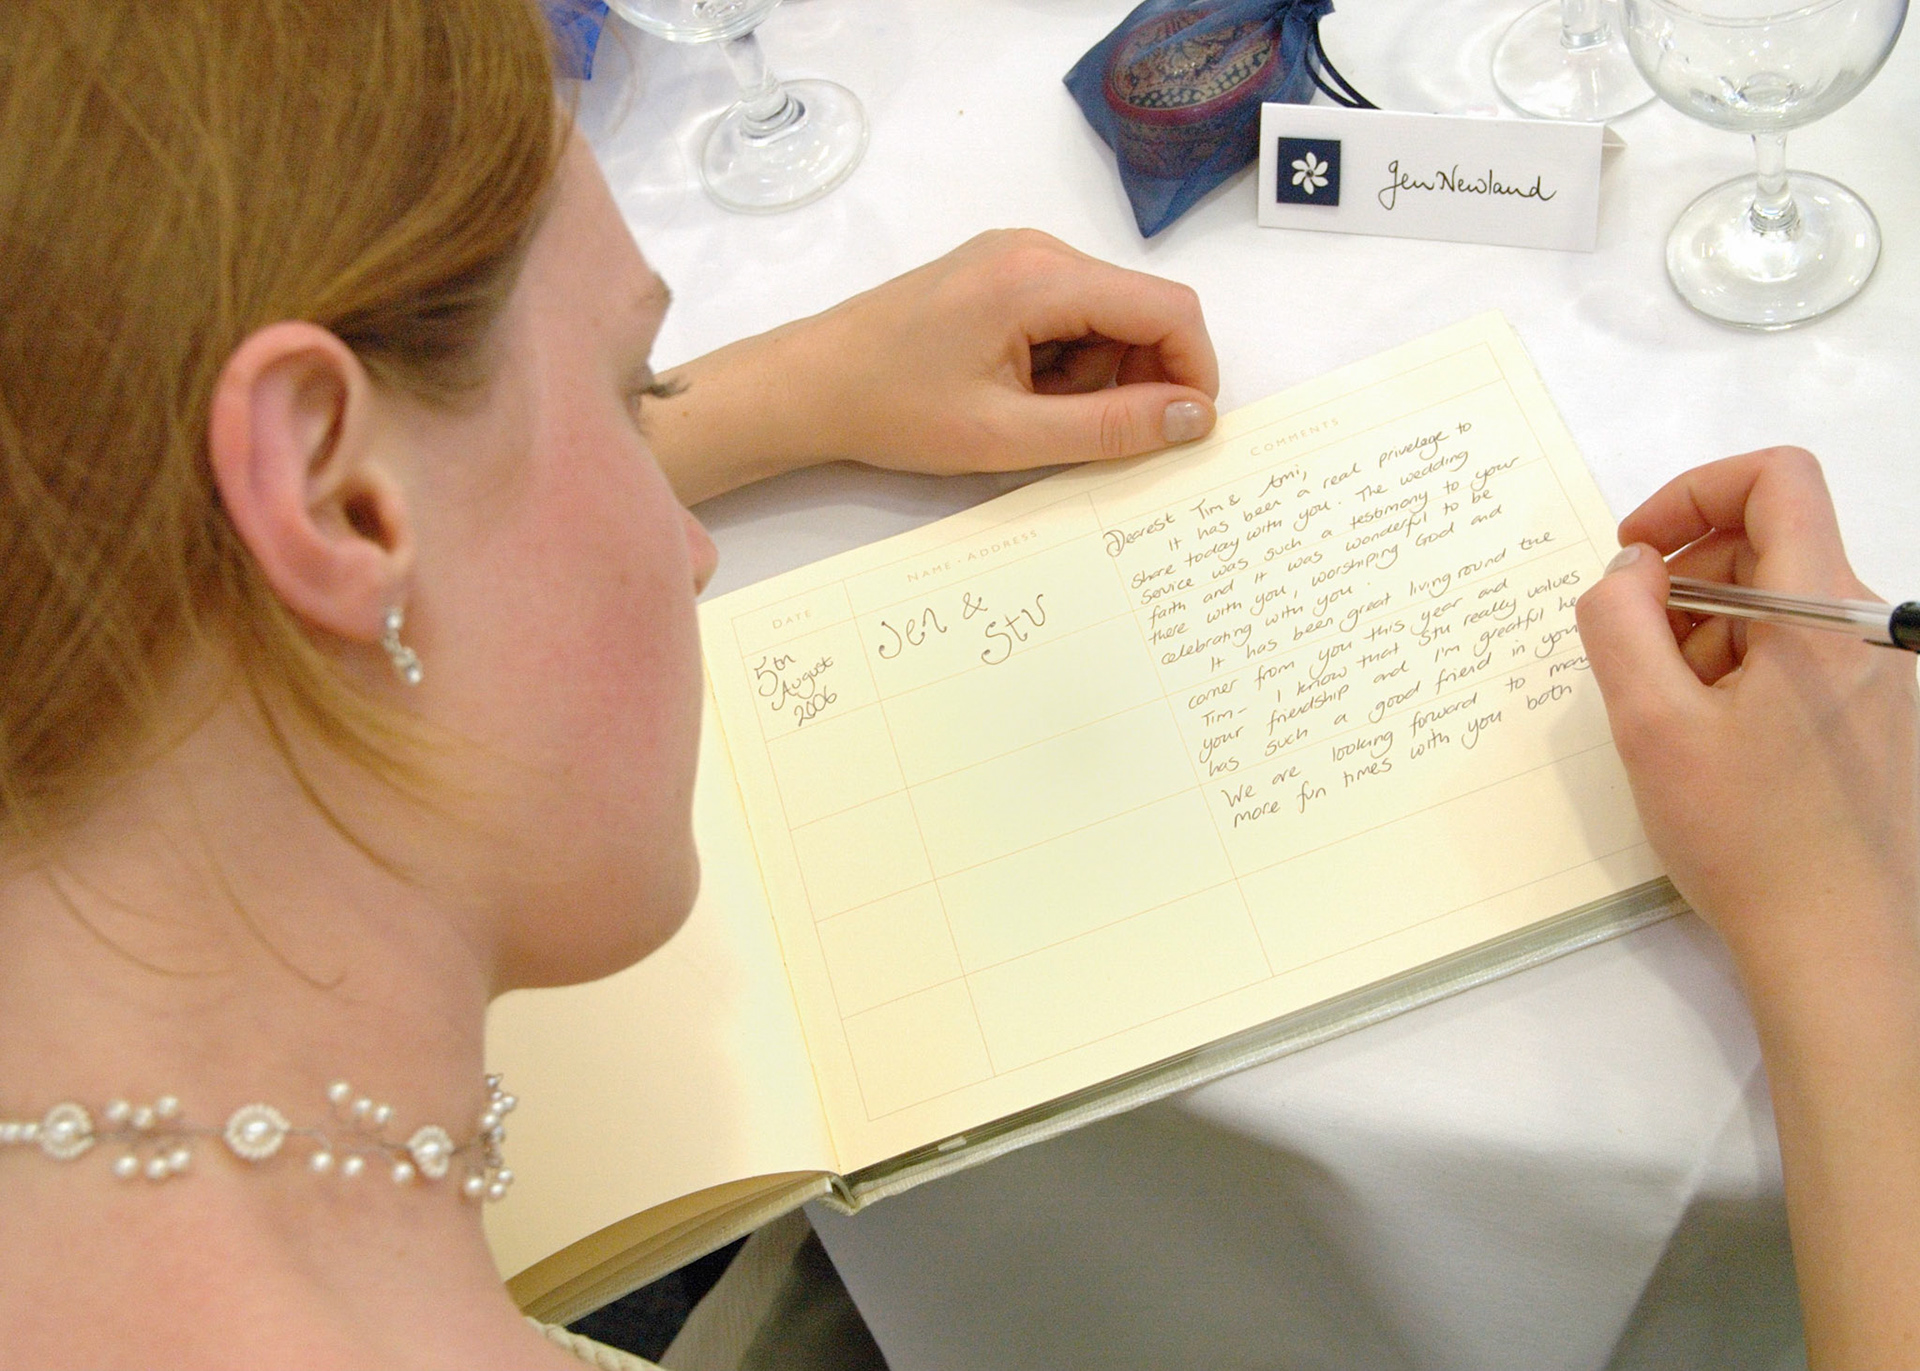 Jen Newland
DATE
NAME · ADDRESS
COMMENTS
5th
August
2006
Jen &
Stu
Dearest Tim & Ami,
It has been a real privelage to
share today with you. The wedding
service was such a testimony to your
faith and it was wonderful to be
there with you, worshiping God and
celebrating with you.
It has been great living round the
corner from you this year and
Tim- I know that Stu really values
your friendship and I'm greatful he
has such a good friend in you
We are looking forward to many
more fun times with you both